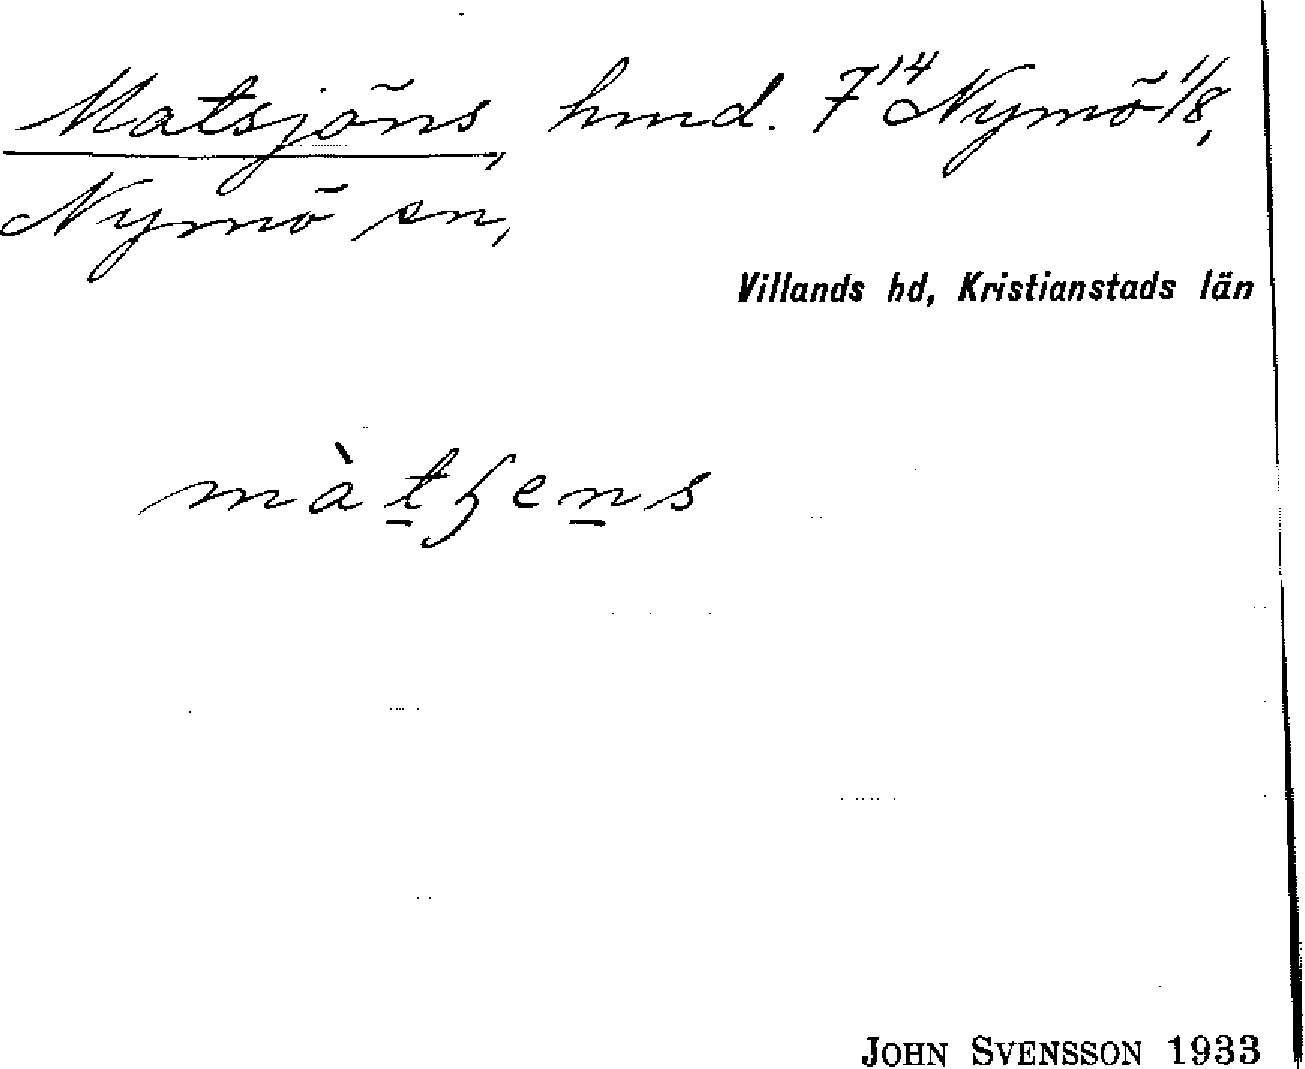 Matsjöns, hmd. 7¹⁴ Nymö 1/8,
Nymö sn,
Villands hd, Kristianstads län
màt̲ɧen̲s
JOHN SVENSSON 1933